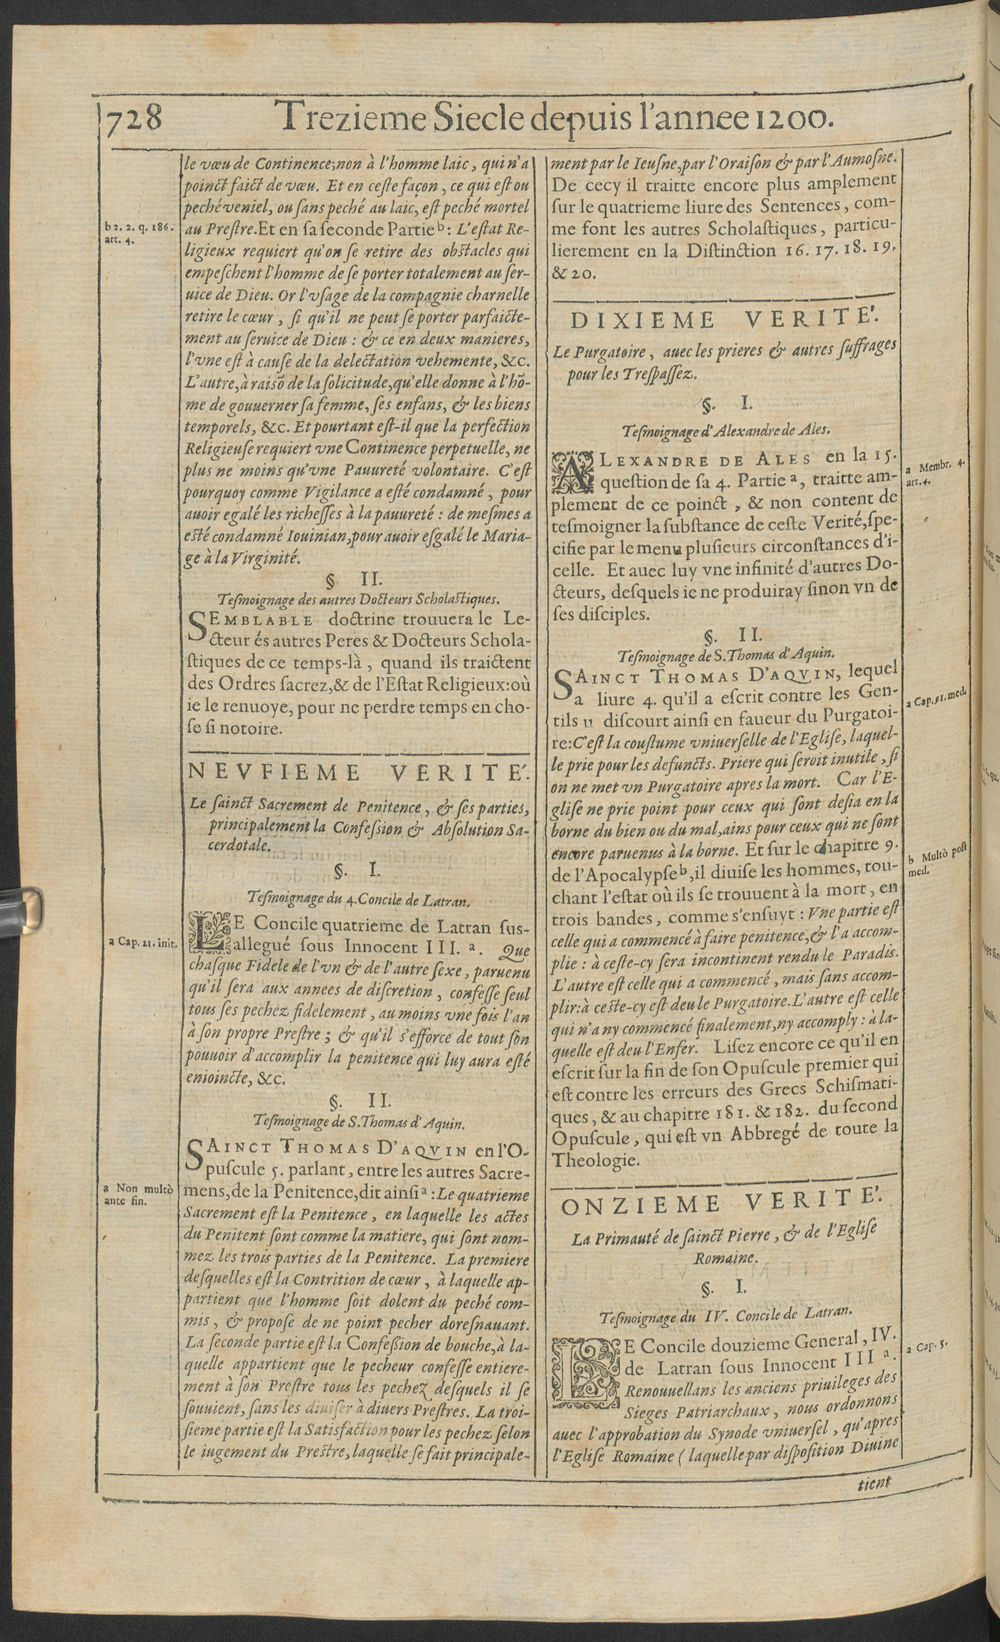 728 Trezieme Siecle depuis l'annee 1200.
le vœu de Continence; non à l'homme laic, qui n'a
poinct faict de vœu. Et en ceste façon, ce qui est ou
peché veniel, ou sans peché au laic, est peché mortel
au Prestre. Et en sa seconde Partie b: L'estat Re-
ligieux requiert qu'on se retire des obstacles qui
empeschent l'homme de se porter totalement au ser-
uice de Dieu. Or l'vsage de la compagnie charnelle
retire le cœur, si qu'il ne peut se porter parfaicte-
ment au seruice de Dieu: & ce en deux manieres,
l'vne est à cause de la delectation vehemente, &c.
L'autre, à raisõ de la solicitude, qu'elle donne à l'hõ-
me de gouuerner sa femme, ses enfans, & les biens
temporels, &c. Et pourtant est-il que la perfection
Religieuse requiert vne Continence perpetuelle, ne
plus ne moins qu'vne Pauureté volontaire. C'est
pourquoy comme Vigilance a esté condamné, pour
auoir egalé les richesses à la pauureté: de mesmes a
esté condamné Iouinian, pour auoir esgalé le Maria-
ge à la Virginité.
b 2. 2. q. 186.
art. 4.
§ II.
Tesmoignage des autres Docteurs Scholastiques.
SEMBLABLE doctrine trouuera le Le-
cteur és autres Peres & Docteurs Schola-
stiques de ce temps-là, quand ils traictent
des Ordres sacrez, & de l'Estat Religieux: où
ie le renuoye, pour ne perdre temps en cho-
se si notoire.
NEVFIEME VERITE'.
Le sainct Sacrement de Penitence, & ses parties,
principalement la Confession & Absolution Sa-
cerdotale.
§. I.
Tesmoignage du 4. Concile de Latran.
LE Concile quatrieme de Latran sus-
allegué sous Innocent III. a. Que
chasque Fidele de l'vn & de l'autre sexe, paruenu
qu'il sera aux annees de discretion, confesse seul
tous ses pechez fidelement, au moins vne fois l'an
à son propre Prestre; & qu'il s'efforce de tout son
pouuoir d'accomplir la penitence qui luy aura esté
enioincte, &c.
a Cap. 21. init.
§. II.
Tesmoignage de S. Thomas d'Aquin.
SAINCT THOMAS D'AQVIN en l'O-
puscule 5. parlant, entre les autres Sacre-
mens, de la Penitence, dit ainsi a: Le quatrieme
Sacrement est la Penitence, en laquelle les actes
du Penitent sont comme la matiere, qui sont nom-
mez les trois parties de la Penitence. La premiere
desquelles est la Contrition de cœur, à laquelle ap-
partient que l'homme soit dolent du peché com-
mis, & propose de ne point pecher doresnauant.
La seconde partie est la Confession de bouche, à la-
quelle appartient que le pecheur confesse entiere-
ment à son Prestre tous les pechez desquels il se
souuient, sans les diuiser à diuers Prestres. La troi-
sieme partie est la Satisfaction pour les pechez selon
le iugement du Prestre, laquelle se fait principale-
a Non multò
ante fin.
ment par le Ieusne, par l'Oraison & par l'Aumosne.
De cecy il traitte encore plus amplement
sur le quatrieme liure des Sentences, com-
me font les autres Scholastiques, particu-
lierement en la Distinction 16. 17. 18. 19.
& 20.
DIXIEME VERITE'.
Le Purgatoire, auec les prieres & autres suffrages
pour les Trespassez.
§. I.
Tesmoignage d'Alexandre de Ales.
ALEXANDRE DE ALES en la 15.
question de sa 4. Partie a, traitte am-
plement de ce poinct, & non content de
tesmoigner la substance de ceste Verité, spe-
cifie par le menu plusieurs circonstances d'i-
celle. Et auec luy vne infinité d'autres Do-
cteurs, desquels ie ne produiray sinon vn de
ses disciples.
a Membr. 4.
art. 4.
§. II.
Tesmoignage de S. Thomas d'Aquin.
SAINCT THOMAS D'AQVIN, lequel
a liure 4. qu'il a escrit contre les Gen-
tils 11 discourt ainsi en faueur du Purgatoi-
re: C'est la coustume vniuerselle de l'Eglise, laquel-
le prie pour les defuncts. Priere qui seroit inutile, si
on ne met vn Purgatoire apres la mort. Car l'E-
glise ne prie point pour ceux qui sont desia en la
borne du bien ou du mal, ains pour ceux qui ne sont
encore paruenus à la borne. Et sur le chapitre 9.
de l'Apocalypse b, il diuise les hommes, tou-
chant l'estat où ils se trouuent à la mort, en
trois bandes, comme s'ensuyt: Vne partie est
celle qui a commencé à faire penitence, & l'a accom-
plie: à ceste-cy sera incontinent rendu le Paradis.
L'autre est celle qui a commencé, mais sans accom-
plir: à ceste-cy est deu le Purgatoire. L'autre est celle
qui n'a ny commencé finalement, ny accomply: à la-
quelle est deu l'Enfer. Lisez encore ce qu'il en
escrit sur la fin de son Opuscule premier qui
est contre les erreurs des Grecs Schismati-
ques, & au chapitre 181. & 182. du second
Opuscule, qui est vn Abbregé de toute la
Theologie.
a Cap. 91. med.
b Multò post
med.
ONZIEME VERITE'.
La Primauté de sainct Pierre, & de l'Eglise
Romaine.
§. I.
Tesmoignage du IV. Concile de Latran.
LE Concile douzieme General, IV.
de Latran sous Innocent III a.
Renouuellans les anciens priuileges des
Sieges Patriarchaux, nous ordonnons
auec l'approbation du Synode vniuersel, qu'apres
l'Eglise Romaine (laquelle par disposition Diuine
a Cap. 5.
tient